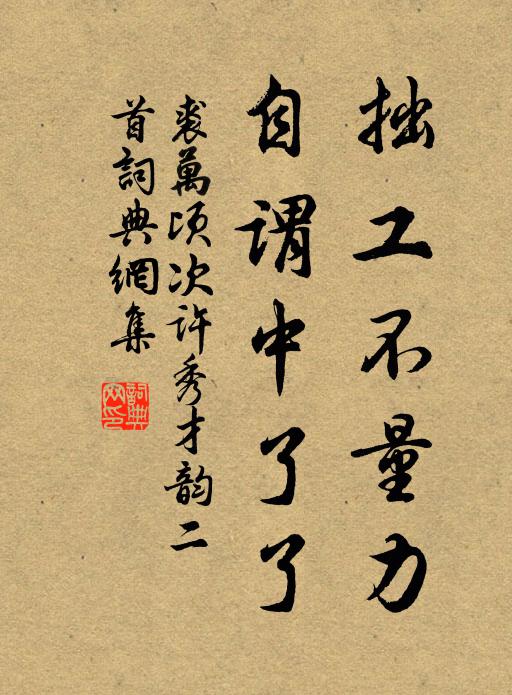 拙工不量力
自謂中了了
裘萬頃次許秀才韵二
首詞典網集
詞典网印